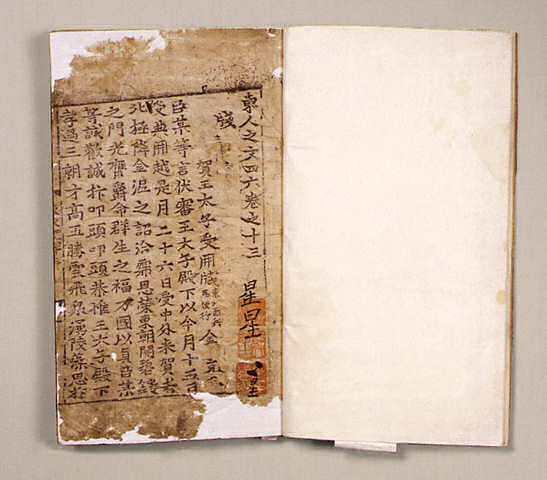 東人之文四六卷之十三 星星
牋
賀王太子受冊牋 金克
臣某等言伏審王太子殿下以今月十五日
受典冊越是月二十六日受中外來賀者
北極降金泥之詔洽霈恩榮東朝開
之門光膺爵命群生之福万國以貞臣某
等誠歡誠抃叩頭叩頭恭惟王太子殿下
孝過三朝才高五勝雲飛泉湧陸